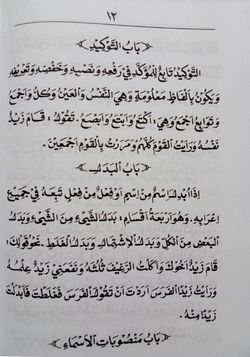 ١٢
﴿بَابُ التَّوْكِيْدِ﴾
التَّوْكِيْدُ تَابِعٌ لِلْمُؤَكَّدِ فِيْ رَفْعِهِ وَنَصْبِهِ وَخَفْضِهِ وَتَعْرِيْفِهِ
وَيَكُوْنُ بِأَلْفَاظٍ مَعْلُوْمَةٍ وَهِيَ: النَّفْسُ وَالْعَيْنُ وَكُلٌّ وَأَجْمَعُ
وَتَوَابِعُ أَجْمَعَ وَهِيَ: أَكْتَعُ وَأَبْتَعُ وَأَبْصَعُ. تَقُوْلُ: قَامَ زَيْدٌ
نَفْسُهُ وَرَأَيْتُ الْقَوْمَ كُلَّهُمْ وَمَرَرْتُ بِالْقَوْمِ أَجْمَعِيْنَ.
﴿بَابُ الْبَدَلِ﴾
إِذَا أُبْدِلَ اسْمٌ مِنِ اسْمٍ أَوْ فِعْلٌ مِنْ فِعْلٍ تَبِعَهُ فِيْ جَمِيْعِ
إِعْرَابِهِ. وَهُوَ أَرْبَعَةُ أَقْسَامٍ: بَدَلُ الشَّيْءِ مِنَ الشَّيْءِ وَبَدَلُ
الْبَعْضِ مِنَ الْكُلِّ وَبَدَلُ الْاِشْتِمَالِ وَبَدَلُ الْغَلَطِ. نَحْوُ قَوْلِكَ:
قَامَ زَيْدٌ أَخُوْكَ وَأَكَلْتُ الرَّغِيْفَ ثُلُثَهُ وَنَفَعَنِيْ زَيْدٌ عِلْمُهُ
وَرَأَيْتُ زَيْدًا الْفَرَسَ أَرَدْتَ أَنْ تَقُوْلَ الْفَرَسَ فَغَلَطْتَ فَأَبْدَلْتَ
زَيْدًا مِنْهُ.
﴿بَابُ مَنْصُوْبَاتِ الْأَسْمَاءِ﴾